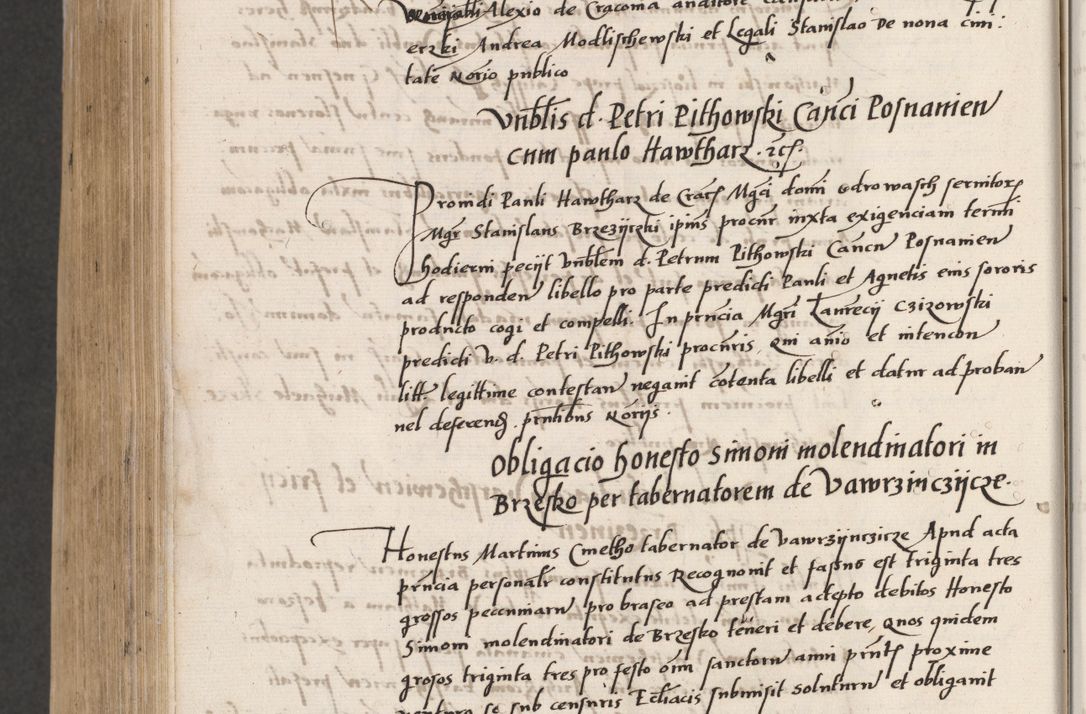 Alexio de Cracovia auditore
Andrea Modlischewski et Legali Stanislao De nona
tate Norio publico
Vnblis d. Petri Pithowski Canci Posnanien
cum paulo Hawtharz . rcs.
Prouidi Pauli Hawtharz de Crac Mgci domi odrowasch seruitor
Mgr Stanislaus Brzezijczki ipius procur iuxta exigenciam termi
hodierni pecijt Vnblem d. Petrum Pithowski Cancn Posnanien
ad responden libello pro parte predicti Pauli et Agnetis eius sororis
producto cogi et compelli. In prncia Mgri Laurecij Czizowski
predicti v. d. Petri Pithowski procuris, qui anio et intencon
litt legittime contestan negauit cotenta libelli et datur ad proban
uel deferend. prntibus Norijs.
Obligacio honesto Simoni molendinatori in
Brzesko per tabernatorem de Vawrzinczijcze.
Honestus Martinus Cmetho tabernator de Vawrzijnczicze Apud acta
prncia personalr constitutus Recognouit et fassus est triginta tres
grossos pecuniarn pro braseo ad prestam adepto debitos Honesto
Simoni molendinatori de Brzesko teneri et debere, Quos quidem
grosos triginta tres pro festo oim sanctorn anni prnts proxime
se sub censuris Ecliacis submisit soluturn et obligauit